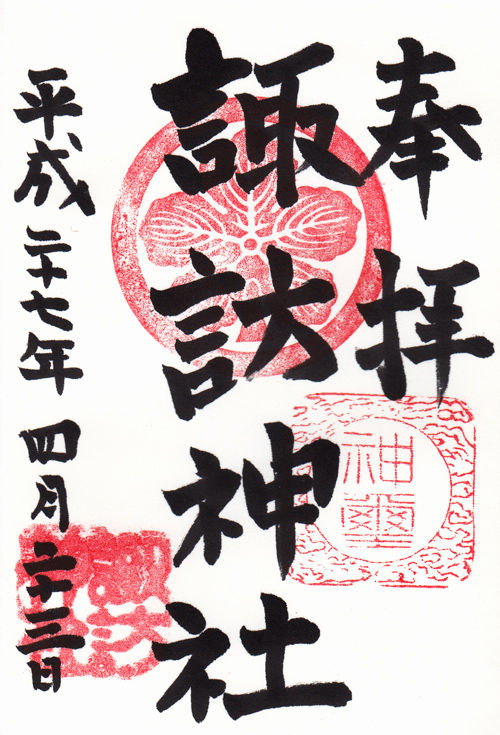 奉拝
諏訪神社
平成二十七年 四月二十三日
神璽